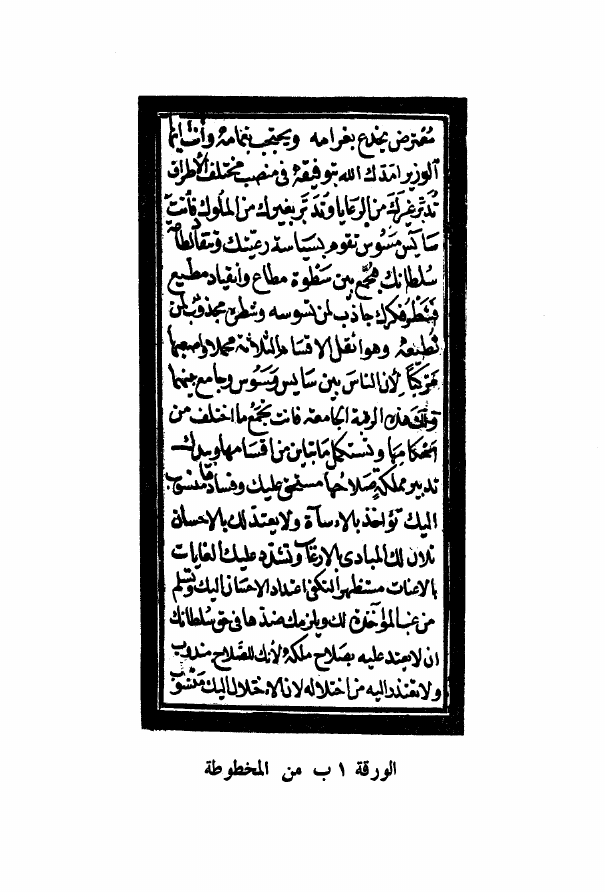 معترض يخدع بغرامه ويجتب بتمامه وأنت ايها
الوزير امدك الله بتوفيقه في منصب مختلف الأطراف
تدبر غيرك من الرعايا وتدبر بغيرك من الملوك فأنت
سايس مسوس تقوم بسياسة رعيتك وتنقاد لطاعة
سلطانك فتجمع بين سطوة مطاع وانقياد مطيع
فشطر فكرك جاذب لمن تسوسه وشطره مجذوب لمن
تطيعه وهو اثقل الاقسام الثلاثة محملا واصعبها
مركبا لأن الناس بين سايس ومسوس وجامع بينهما
ولك هذه الرتبة الجامعة فانت تجمع ما اختلف من
احكامها وتستكمل ما تباين من اقسامها وبيدك
تدبير مملكة صلاحها مستحق عليك وفسادها منسوب
اليك تؤاخذ بالاساءة ولا يعتد لك بالاحسان
تلان لك المبادى بالارغاب وتشدد عليك الغايات
بالاعنات مستظهر التكفي اعتداد الاحسان اليك وتسلم
من غب المؤاخذة لك ويلزمك ضدها في حق سلطانك
ان لا يعتد عليه بصلاح ملكه لأنك للصلاح مندوب
ولا تعتذر اليه من اختلاله لان الاختلال اليك منسوب
الورقة ١ ب من المخطوطة